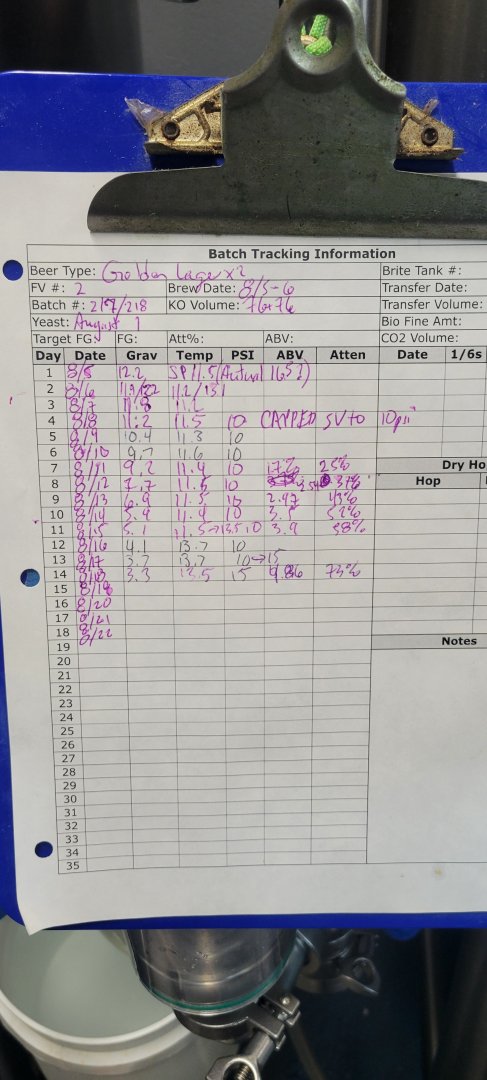 Batch Tracking Information
Beer Type: Golden Lager x2 Brite Tank #:
FV #: 2 Brew Date: 8/5-6 Transfer Date:
Batch #: 217/218 KO Volume: 76+76 Transfer Volume:
Yeast: August 1 Bio Fine Amt:
Target FG: FG: Att%: ABV: CO2 Volume:
Day Date Grav Temp PSI ABV Atten Date 1/6s
1 8/5 12.2 SP 11.5 (Actual
2 8/6 11.2/
3 8/7 11.8 11.2
4 8/8 11.2 11.5 10 CAPPED SV to 10psi
5 8/9 10.4 11.3 10
6 8/10 9.7 11.6 10
7 8/11 9.2 11.4 10 25% Dry Ho
8 8/12 7.7 11.5 10 37% Hop
9 8/13 6.9 11.5 10 2.97 43%
10 8/14 5.9 11.4 10 3.5 52%
11 8/15 5.1 11.5→13.5 10 3.9 58%
12 8/16 4.1 13.7 10
13 8/17 3.7 13.7 10→15
14 8/18 3.3 13.5 15 4.86 73%
15 8/19
16 8/20
17 8/21
18 8/22
19 Notes
20
21
22
23
24
25
26
27
28
29
30
31
32
33
34
35